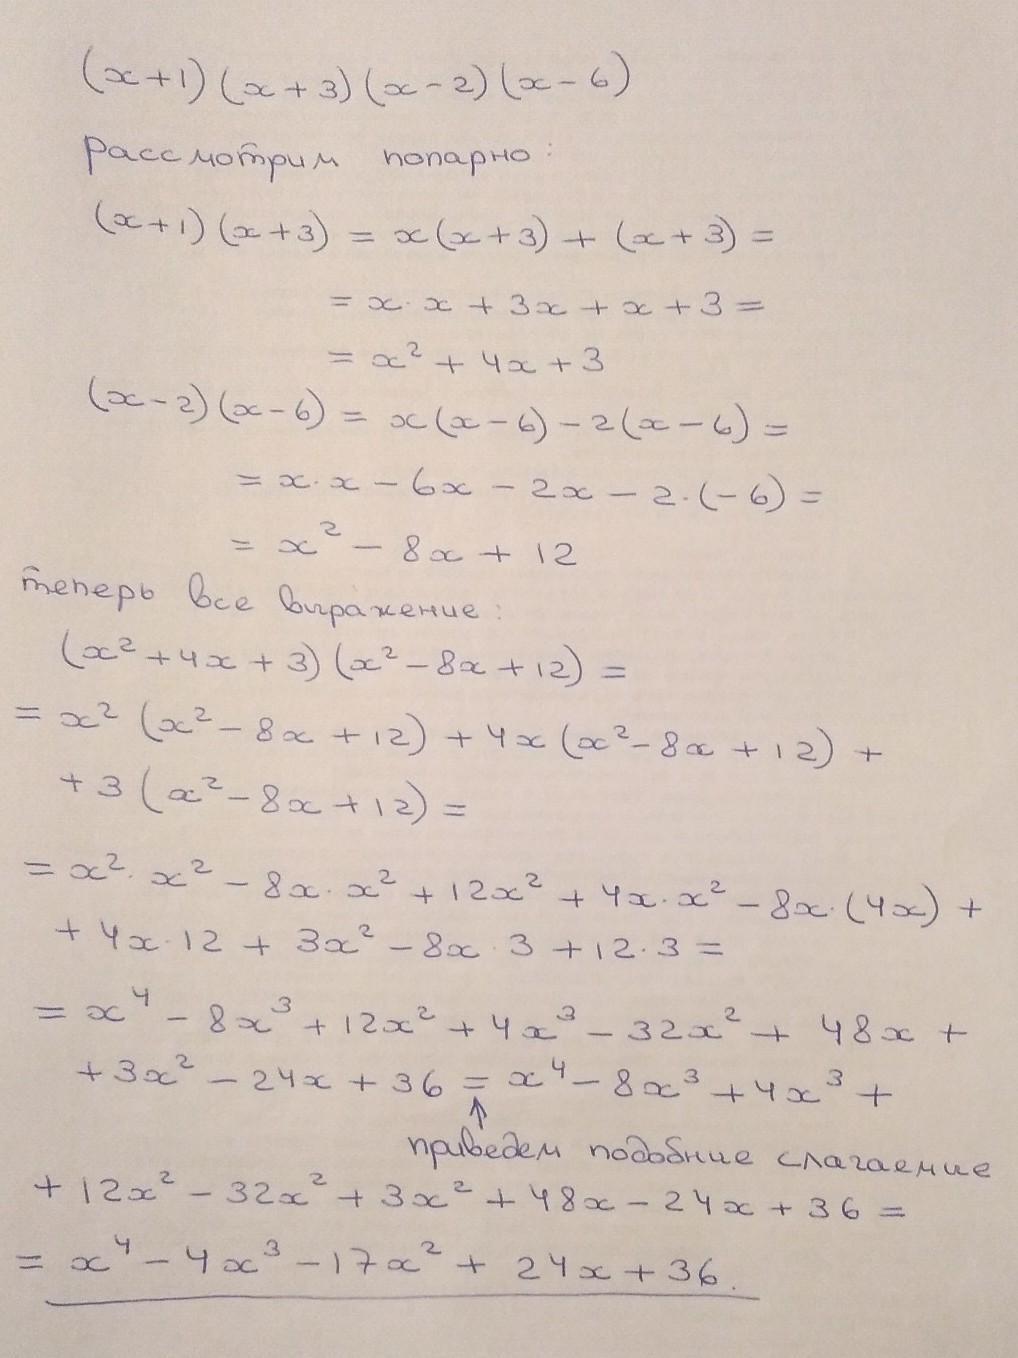 (x+1)(x+3)(x-2)(x-6)
Рассмотрим попарно:
(x+1)(x+3) = x(x+3) + (x+3) =
= x·x + 3x + x + 3 =
= x² + 4x + 3
(x-2)(x-6) = x(x-6) - 2(x-6) =
= x·x - 6x - 2x - 2·(-6) =
= x² - 8x + 12
теперь все выражение:
(x² + 4x + 3)(x² - 8x + 12) =
= x² (x² - 8x + 12) + 4x (x² - 8x + 12) +
+ 3 (x² - 8x + 12) =
= x²·x² - 8x·x² + 12x² + 4x·x² - 8x·(4x) +
+ 4x·12 + 3x² - 8x·3 + 12·3 =
= x⁴ - 8x³ + 12x² + 4x³ - 32x² + 48x +
+ 3x² - 24x + 36 = x⁴ - 8x³ + 4x³ +
↑
приведем подобние слагаемие
+ 12x² - 32x² + 3x² + 48x - 24x + 36 =
= x⁴ - 4x³ - 17x² + 24x + 36.